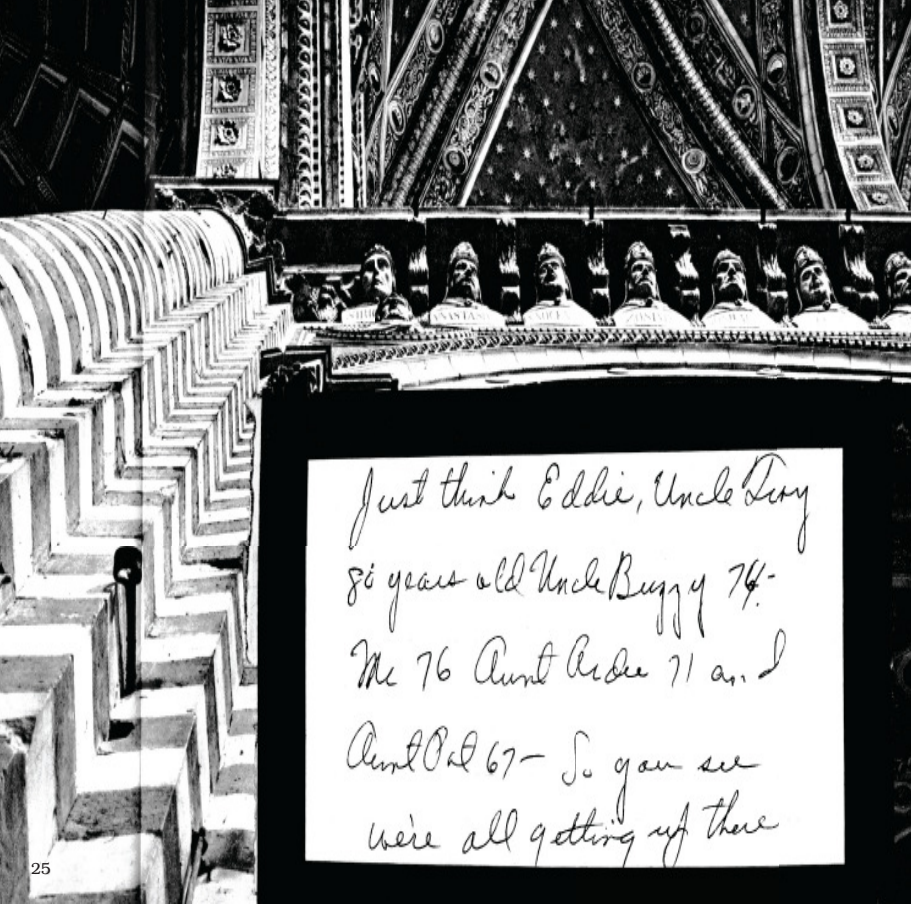 ANASTAS
Just think Eddie, Uncle Tiny
80 years old Uncle Buzzy 74-
Me 76 Aunt Ardie 71 and
Aunt Pat 67- So you see
we're all getting up there
25